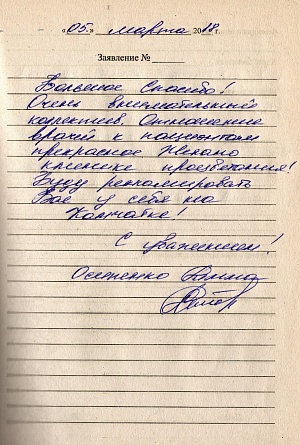 «05.» марта 2018 г.
Заявление №
Большое Спасибо!
Очень внимательный
коллектив. Отношение
врачей к пациентам
прекрасное Желаю
клинике процветания!
Буду рекомендовать
Вас у себя на
Камчатке!
С уважением!